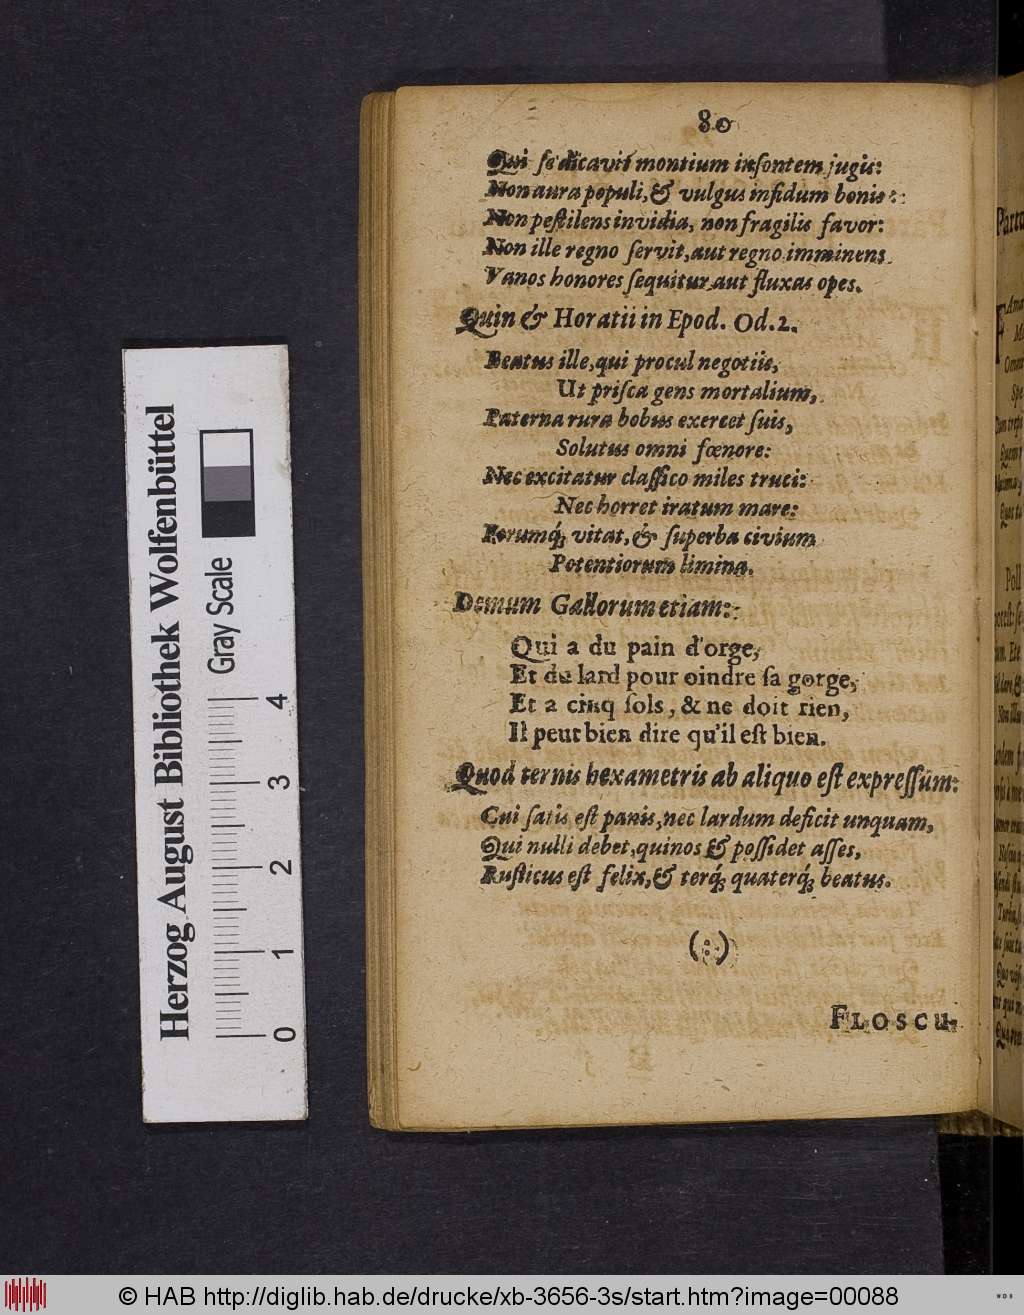 80
Qui se dicavit montium insontem jugis:
Non aura populi, & vulgus infidum bonis:
Non pestilens invidia, non fragilis favor:
Non ille regno servit, aut regno imminens
Vanos honores sequitur, aut fluxas opes.
Quin & Horatii in Epod. Od. 2.
Beatus ille, qui procul negotiis,
Ut prisca gens mortalium,
Paterna rura bobus exercet suis,
Solutus omni fœnore:
Nec excitatur classico miles truci:
Nec horret iratum mare:
Forumq́; vitat, & superba civium
Potentiorum limina.
Demum Gallorum etiam:
Qui a du pain d'orge,
Et du lard pour oindre sa gorge,
Et a cinq sols, & ne doit rien,
Il peut bien dire qu'il est bien.
Quod ternis hexametris ab aliquo est expressum:
Cui satis est panis, nec lardum deficit unquam,
Qui nulli debet, quinos & possidet asses,
Rusticus est felix, & terq́; quaterq́; beatus.
(:)
FLOSCU-
Herzog August Bibliothek Wolfenbüttel
Gray Scale
0 1 2 3 4
© HAB http://diglib.hab.de/drucke/xb-3656-3s/start.htm?image=00088